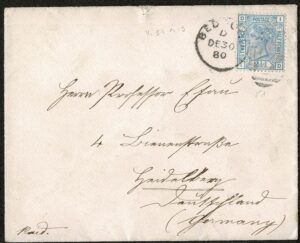 BED
D
DE 30
80
Herrn Professor
4 Bienenstraße
Heidelberg
Deutschland
(Germany)
Paid.